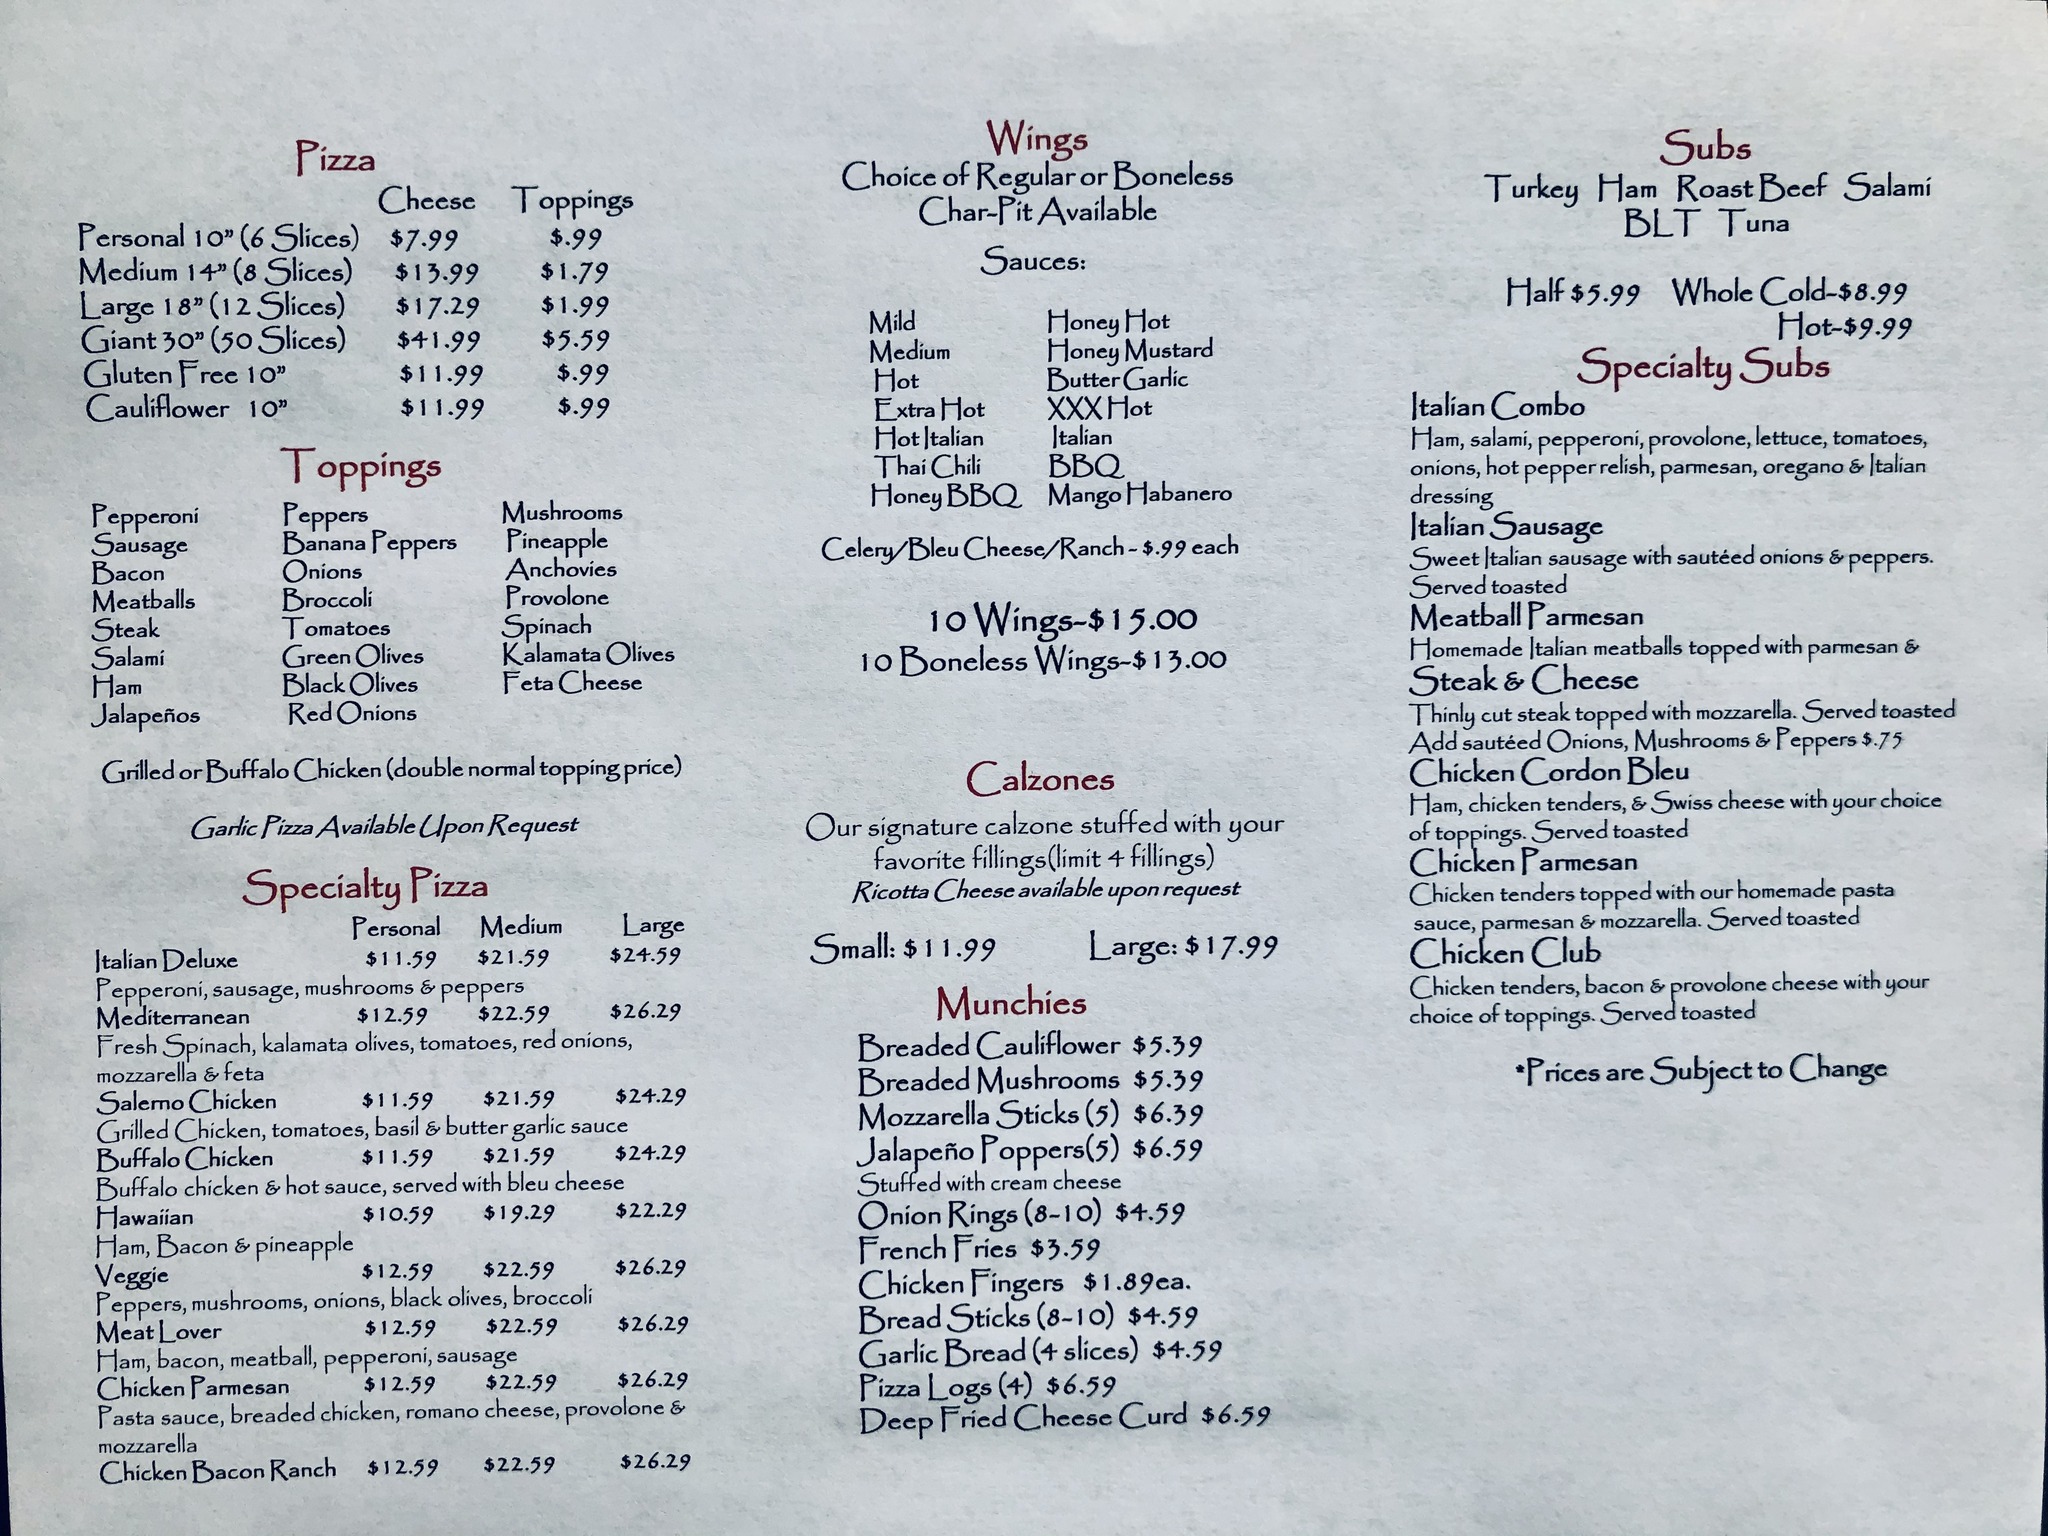 Pizza
Cheese Toppings
Personal 10" (6 Slices) $7.99 $.99
Medium 14" (8 Slices) $13.99 $1.79
Large 18" (12 Slices) $17.29 $1.99
Giant 30" (50 Slices) $41.99 $5.59
Gluten Free 10" $11.99 $.99
Cauliflower 10" $11.99 $.99
Toppings
Pepperoni Peppers Mushrooms
Sausage Banana Peppers Pineapple
Bacon Onions Anchovies
Meatballs Broccoli Provolone
Steak Tomatoes Spinach
Salami Green Olives Kalamata Olives
Ham Black Olives Feta Cheese
Jalapeños Red Onions
Grilled or Buffalo Chicken (double normal topping price)
Garlic Pizza Available Upon Request
Specialty Pizza
Personal Medium Large
Italian Deluxe $11.59 $21.59 $24.59
Pepperoni, sausage, mushrooms & peppers
Mediterranean $12.59 $22.59 $26.29
Fresh Spinach, kalamata olives, tomatoes, red onions,
mozzarella & feta
Salerno Chicken $11.59 $21.59 $24.29
Grilled Chicken, tomatoes, basil & butter garlic sauce
Buffalo Chicken $11.59 $21.59 $24.29
Buffalo chicken & hot sauce, served with bleu cheese
Hawaiian $10.59 $19.29 $22.29
Ham, Bacon & pineapple
Veggie $12.59 $22.59 $26.29
Peppers, mushrooms, onions, black olives, broccoli
Meat Lover $12.59 $22.59 $26.29
Ham, bacon, meatball, pepperoni, sausage
Chicken Parmesan $12.59 $22.59 $26.29
Pasta sauce, breaded chicken, romano cheese, provolone &
mozzarella
Chicken Bacon Ranch $12.59 $22.59 $26.29
Wings
Choice of Regular or Boneless
Char-Pit Available
Sauces:
Mild Honey Hot
Medium Honey Mustard
Hot Butter Garlic
Extra Hot XXX Hot
Hot Italian Italian
Thai Chili BBQ
Honey BBQ Mango Habanero
Celery/Bleu Cheese/Ranch - $.99 each
10 Wings-$15.00
10 Boneless Wings-$13.00
Calzones
Our signature calzone stuffed with your
favorite fillings(limit 4 fillings)
Ricotta Cheese available upon request
Small: $11.99 Large: $17.99
Munchies
Breaded Cauliflower $5.39
Breaded Mushrooms $5.39
Mozzarella Sticks (5) $6.39
Jalapeño Poppers(5) $6.59
Stuffed with cream cheese
Onion Rings (8-10) $4.59
French Fries $3.59
Chicken Fingers $1.89ea.
Bread Sticks (8-10) $4.59
Garlic Bread (4 slices) $4.59
Pizza Logs (4) $6.59
Deep Fried Cheese Curd $6.59
Subs
Turkey Ham Roast Beef Salami
BLT Tuna
Half $5.99 Whole Cold-$8.99
Hot-$9.99
Specialty Subs
Italian Combo
Ham, salami, pepperoni, provolone, lettuce, tomatoes,
onions, hot pepper relish, parmesan, oregano & Italian
dressing
Italian Sausage
Sweet Italian sausage with sautéed onions & peppers.
Served toasted
Meatball Parmesan
Homemade Italian meatballs topped with parmesan &
Steak & Cheese
Thinly cut steak topped with mozzarella. Served toasted
Add sautéed Onions, Mushrooms & Peppers $.75
Chicken Cordon Bleu
Ham, chicken tenders, & Swiss cheese with your choice
of toppings. Served toasted
Chicken Parmesan
Chicken tenders topped with our homemade pasta
sauce, parmesan & mozzarella. Served toasted
Chicken Club
Chicken tenders, bacon & provolone cheese with your
choice of toppings. Served toasted
*Prices are Subject to Change